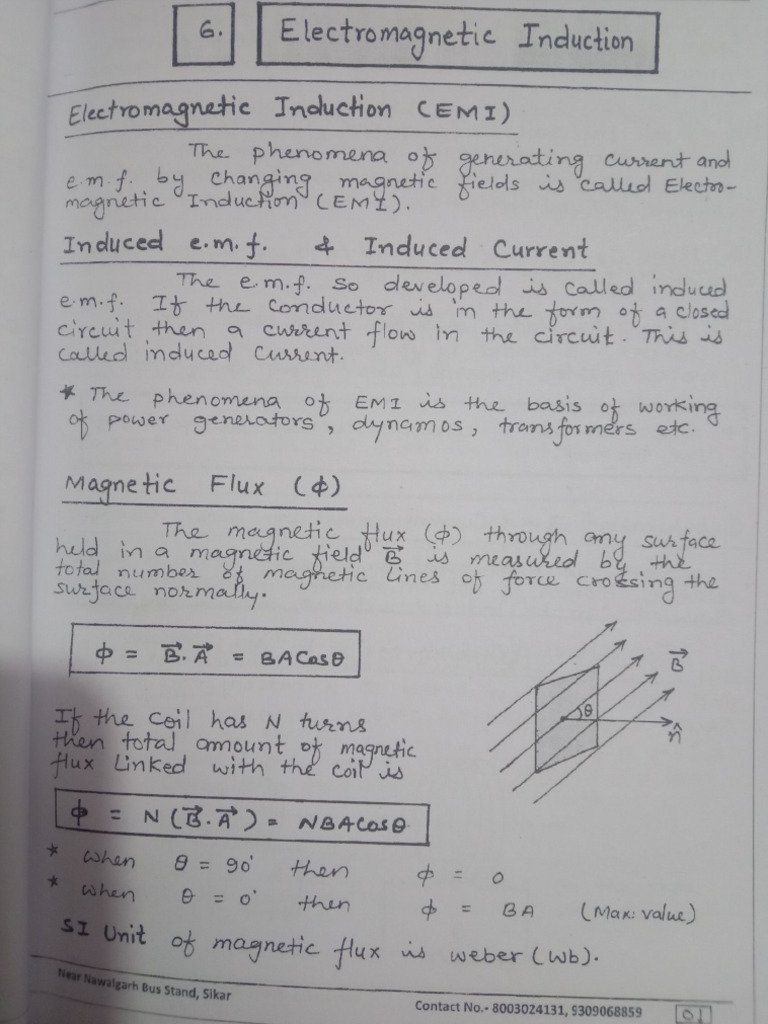 6. Electromagnetic Induction
Electromagnetic Induction (EMI)
The phenomena of generating current and
e.m.f. by changing magnetic fields is called Electro-
magnetic Induction (EMI).
Induced e.m.f. & Induced Current
The e.m.f. so developed is called induced
e.m.f. If the conductor is in the form of a closed
circuit then a current flow in the circuit. This is
called induced current.
* The phenomena of EMI is the basis of working
of power generators, dynamos, transformers etc.
Magnetic Flux (ϕ)
The magnetic flux (ϕ) through any surface
held in a magnetic field B⃗ is measured by the
total number of magnetic lines of force crossing the
surface normally.
ϕ = B⃗.A⃗ = BACosθ
B⃗
θ
n̂
If the coil has N turns
then total amount of magnetic
flux linked with the coil is
ϕ = N(B⃗.A⃗) = NBACosθ
* when θ = 90° then ϕ = 0
* when θ = 0° then ϕ = BA (Max: value)
SI Unit of magnetic flux is weber (Wb).
Near Nawalgarh Bus Stand, Sikar
Contact No.- 8003024131, 9309068859
01